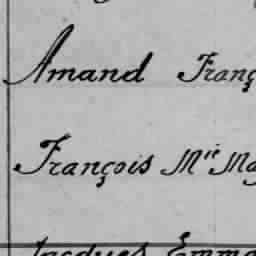 Amand Franç
François M^rie Ma
Jacques Emma